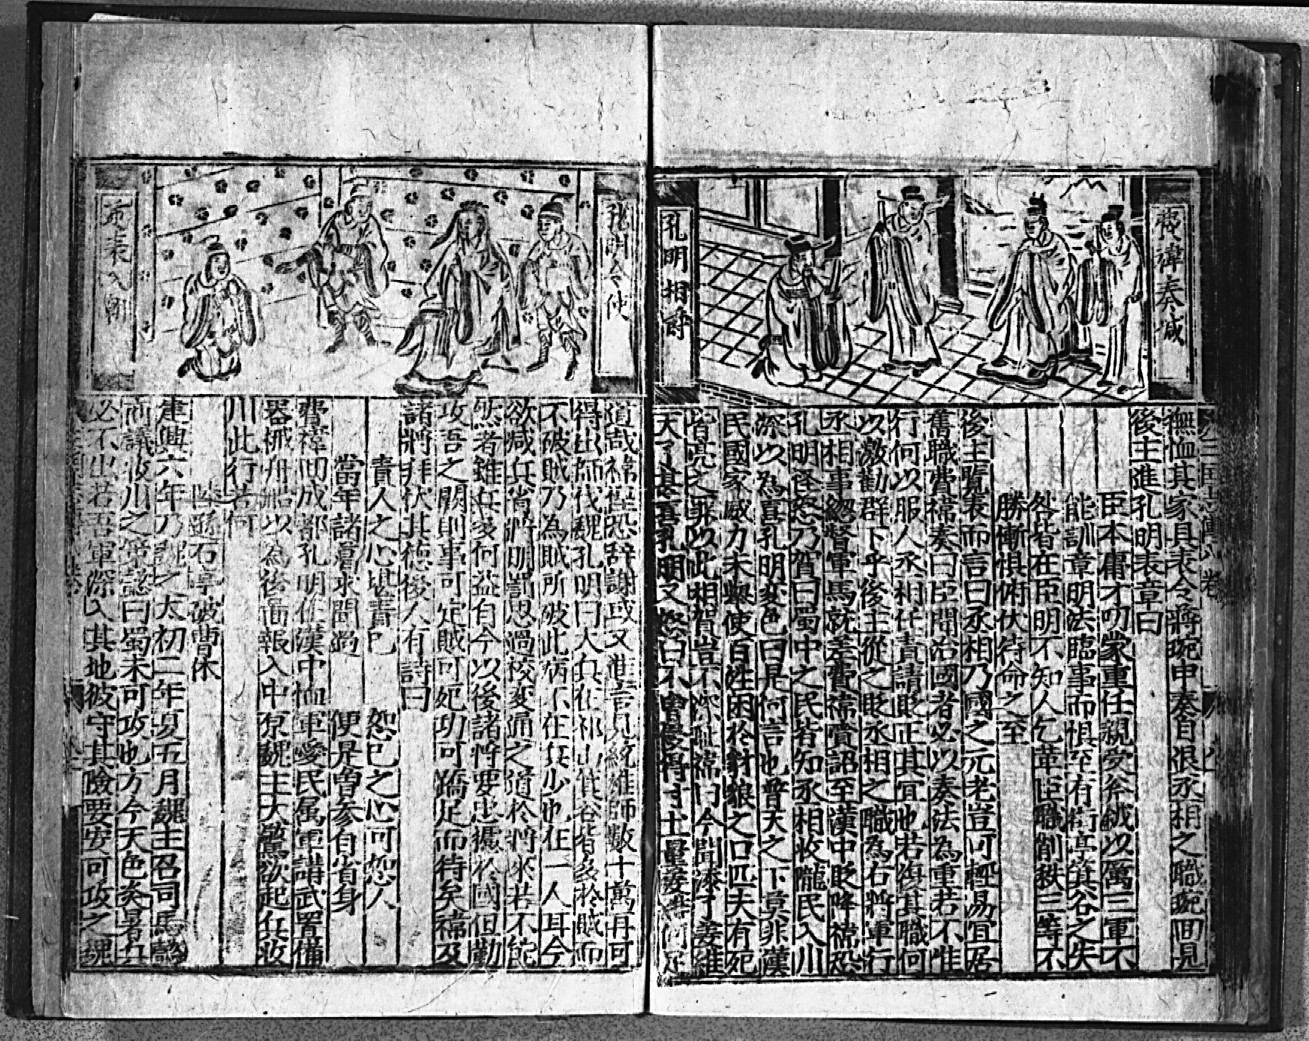 費禕奏減
孔明相爵
撫恤其家具表令蔣琬申奏自很丞相之職琬回見
後主進孔明表章曰
臣本庸才叨蒙重任親受斧鉞以厲三軍不
能訓章明法臨事而惧至有街亭箕谷之失
咎皆在臣明不知人乞革臣職削秩三等不
勝慚惧俯伏待命之至
後主覽表而言曰丞相乃國之元老豈可輕易宜居
舊職費禕奏曰臣聞治國者必以奏法為重若不惟
行何以服人丞相任責請貶正其宜也若復其職何
以激勸群下乎後主從之貶丞相之職為右將軍行
丞相事總督軍馬就差費禕賞詔至漢中貶降禕恐
孔明怪怒乃賀曰蜀中之民皆知丞相收隴民入川
深以為喜孔明变色曰是何言也普天之下莫非漢
民國家威力未舉使百姓困於豺狼之口匹夫有死
皆亮之罪以此明賀豈不深耻禕曰今聞漆了姜維
天了甚喜孔明又怒曰不曾得寸土量姜維何足
孔明令使
道哉禕惶恐辞謝或又進言見統雄師數十萬再可
得出師伐魏孔明曰大兵在祁山箕谷皆多於賊而
不破賊乃為賊所破此病不在兵少也在一人耳今
欲减兵省將明罰思過校变通之道於將來若不能
然者雖兵多何益自今以後諸將要忠攄於國但勤
攻吾之闕則事可定賊可死功可蹻足而待矣禕及
諸將拜伏其德後人有詩曰
責人之心堪責己 恕己之心可恕人
當年諸葛求聞過 便是曾参自省身
費禕回成都孔明在漢中恤軍愛民属軍講武置備
器械舟船以為後面報入中原魏主大驚欲起兵收
川此行若何
陸遜石亭破曹休
建興六年乃魏之太初二年夏五月魏主召司馬懿
商議收川之策懿曰蜀未可攻也方今天色炎暑兵
必不出若吾軍深入其地彼守其險要安可攻之魏